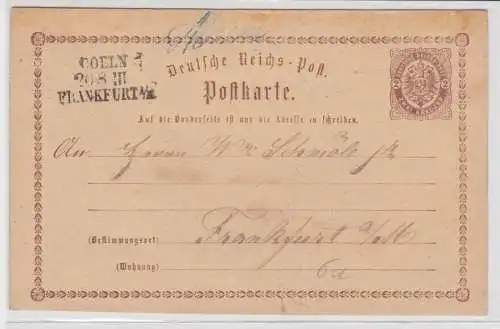 COELN
20 8 III
FRANKFURT
Deutsche Reichs-Post.
Postkarte.
Auf die Vorderseite ist nur die Adresse zu schreiben.
An Herrn Wm
(Bestimmungsort) Frankfurt a/M
(Wohnung)